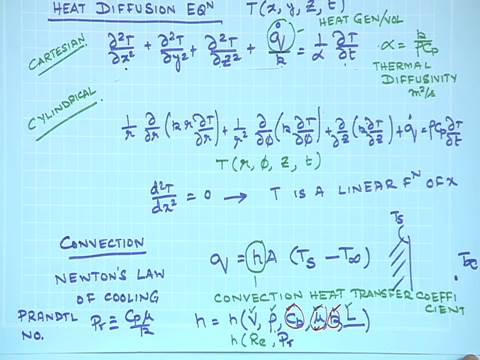 HEAT DIFFUSION EQⁿ T(x, y, z, t)
HEAT GEN/VOL
CARTESIAN ∂²T/∂x² + ∂²T/∂y² + ∂²T/∂z² + q̇/k = 1/α ∂T/∂t α = k/ρCp
THERMAL DIFFUSIVITY m²/s
CYLINDRICAL
1/r ∂/∂r (k r ∂T/∂r) + 1/r² ∂/∂φ (k ∂T/∂φ) + ∂/∂z (k ∂T/∂z) + q̇ = ρCp ∂T/∂t
T(r, φ, z, t)
d²T/dx² = 0 → T IS A LINEAR Fᴺ OF x
CONVECTION
q = hA (Ts − T∞)
Ts
T∞
NEWTON'S LAW OF COOLING
CONVECTION HEAT TRANSFER COEFFICIENT
PRANDTL NO. Pr ≡ Cpμ/k
h = h(V, ρ, Cp, μ, k, L)
h(Re, Pr